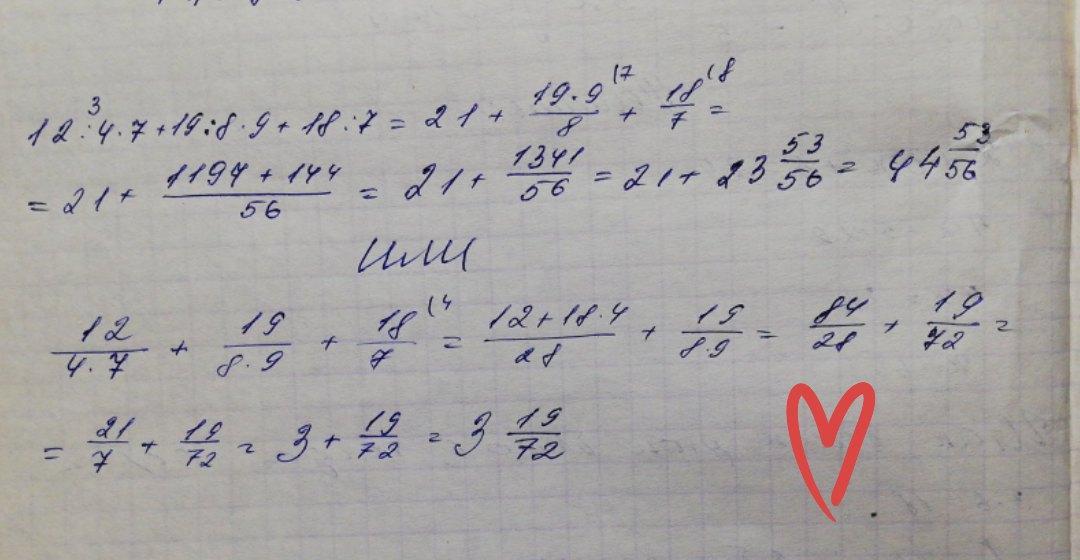 12:4·7+19:8·9+18:7 = 21 + 19·9/8 (7 + 18/7 (8 =
= 21 + 1197+144/56 = 21 + 1341/56 = 21 + 23 53/56 = 44 53/56
или
12/4·7 + 19/8·9 + 18/7 (4 = 12+18·4/28 + 19/8·9 = 84/28 + 19/72 =
= 21/7 + 19/72 = 3 + 19/72 = 3 19/72